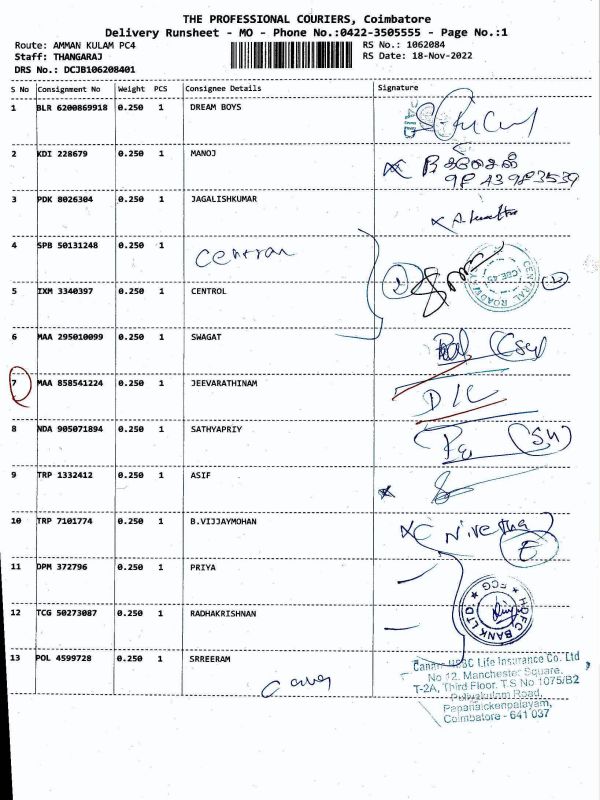 THE PROFESSIONAL COURIERS, Coimbatore
Delivery Runsheet - MO - Phone No.:0422-3505555 - Page No.:1
Route: AMMAN KULAM PC4
RS No.: 1062084
Staff: THANGARAJ
RS Date: 18-Nov-2022
DRS No.: DCJB106208401
S No Consignment No Weight PCS Consignee Details Signature
1 BLR 6200869918 0.250 1 DREAM BOYS
2 KDI 228679 0.250 1 MANOJ
9843983539
3 PDK 8026304 0.250 1 JAGALISHKUMAR
4 SPB 50131248 0.250 1
Central
5 IXM 3340397 0.250 1 CENTROL
2
CENTRAL ROADW
6 MAA 295010099 0.250 1 SWAGAT
7 MAA 858541224 0.250 1 JEEVARATHINAM
D/C
8 NDA 905071894 0.250 1 SATHYAPRIY
9 TRP 1332412 0.250 1 ASIF
10 TRP 7101774 0.250 1 B.VIJJAYMOHAN
Nivetha
E
11 DPM 372796 0.250 1 PRIYA
12 TCG 50273087 0.250 1 RADHAKRISHNAN
HDFC BANK LTD
13 POL 4599728 0.250 1 SRREERAM
Canara HSBC Life Insurance Co. Ltd
No 12, Manchester Square,
T-2A, Third Floor, T.S No 1075/B2
Puliyakulam Road,
Papanaickenpalayam,
Coimbatore - 641 037